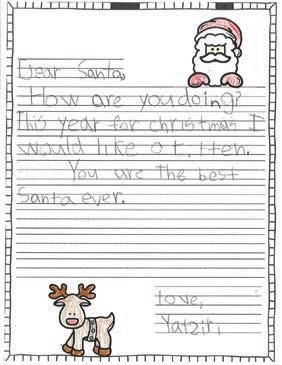 Dear Santa,
How are you doing?
This year for christmas I
would like a t, tten.
You are the best
Santa ever.
Love,
Yatziri,